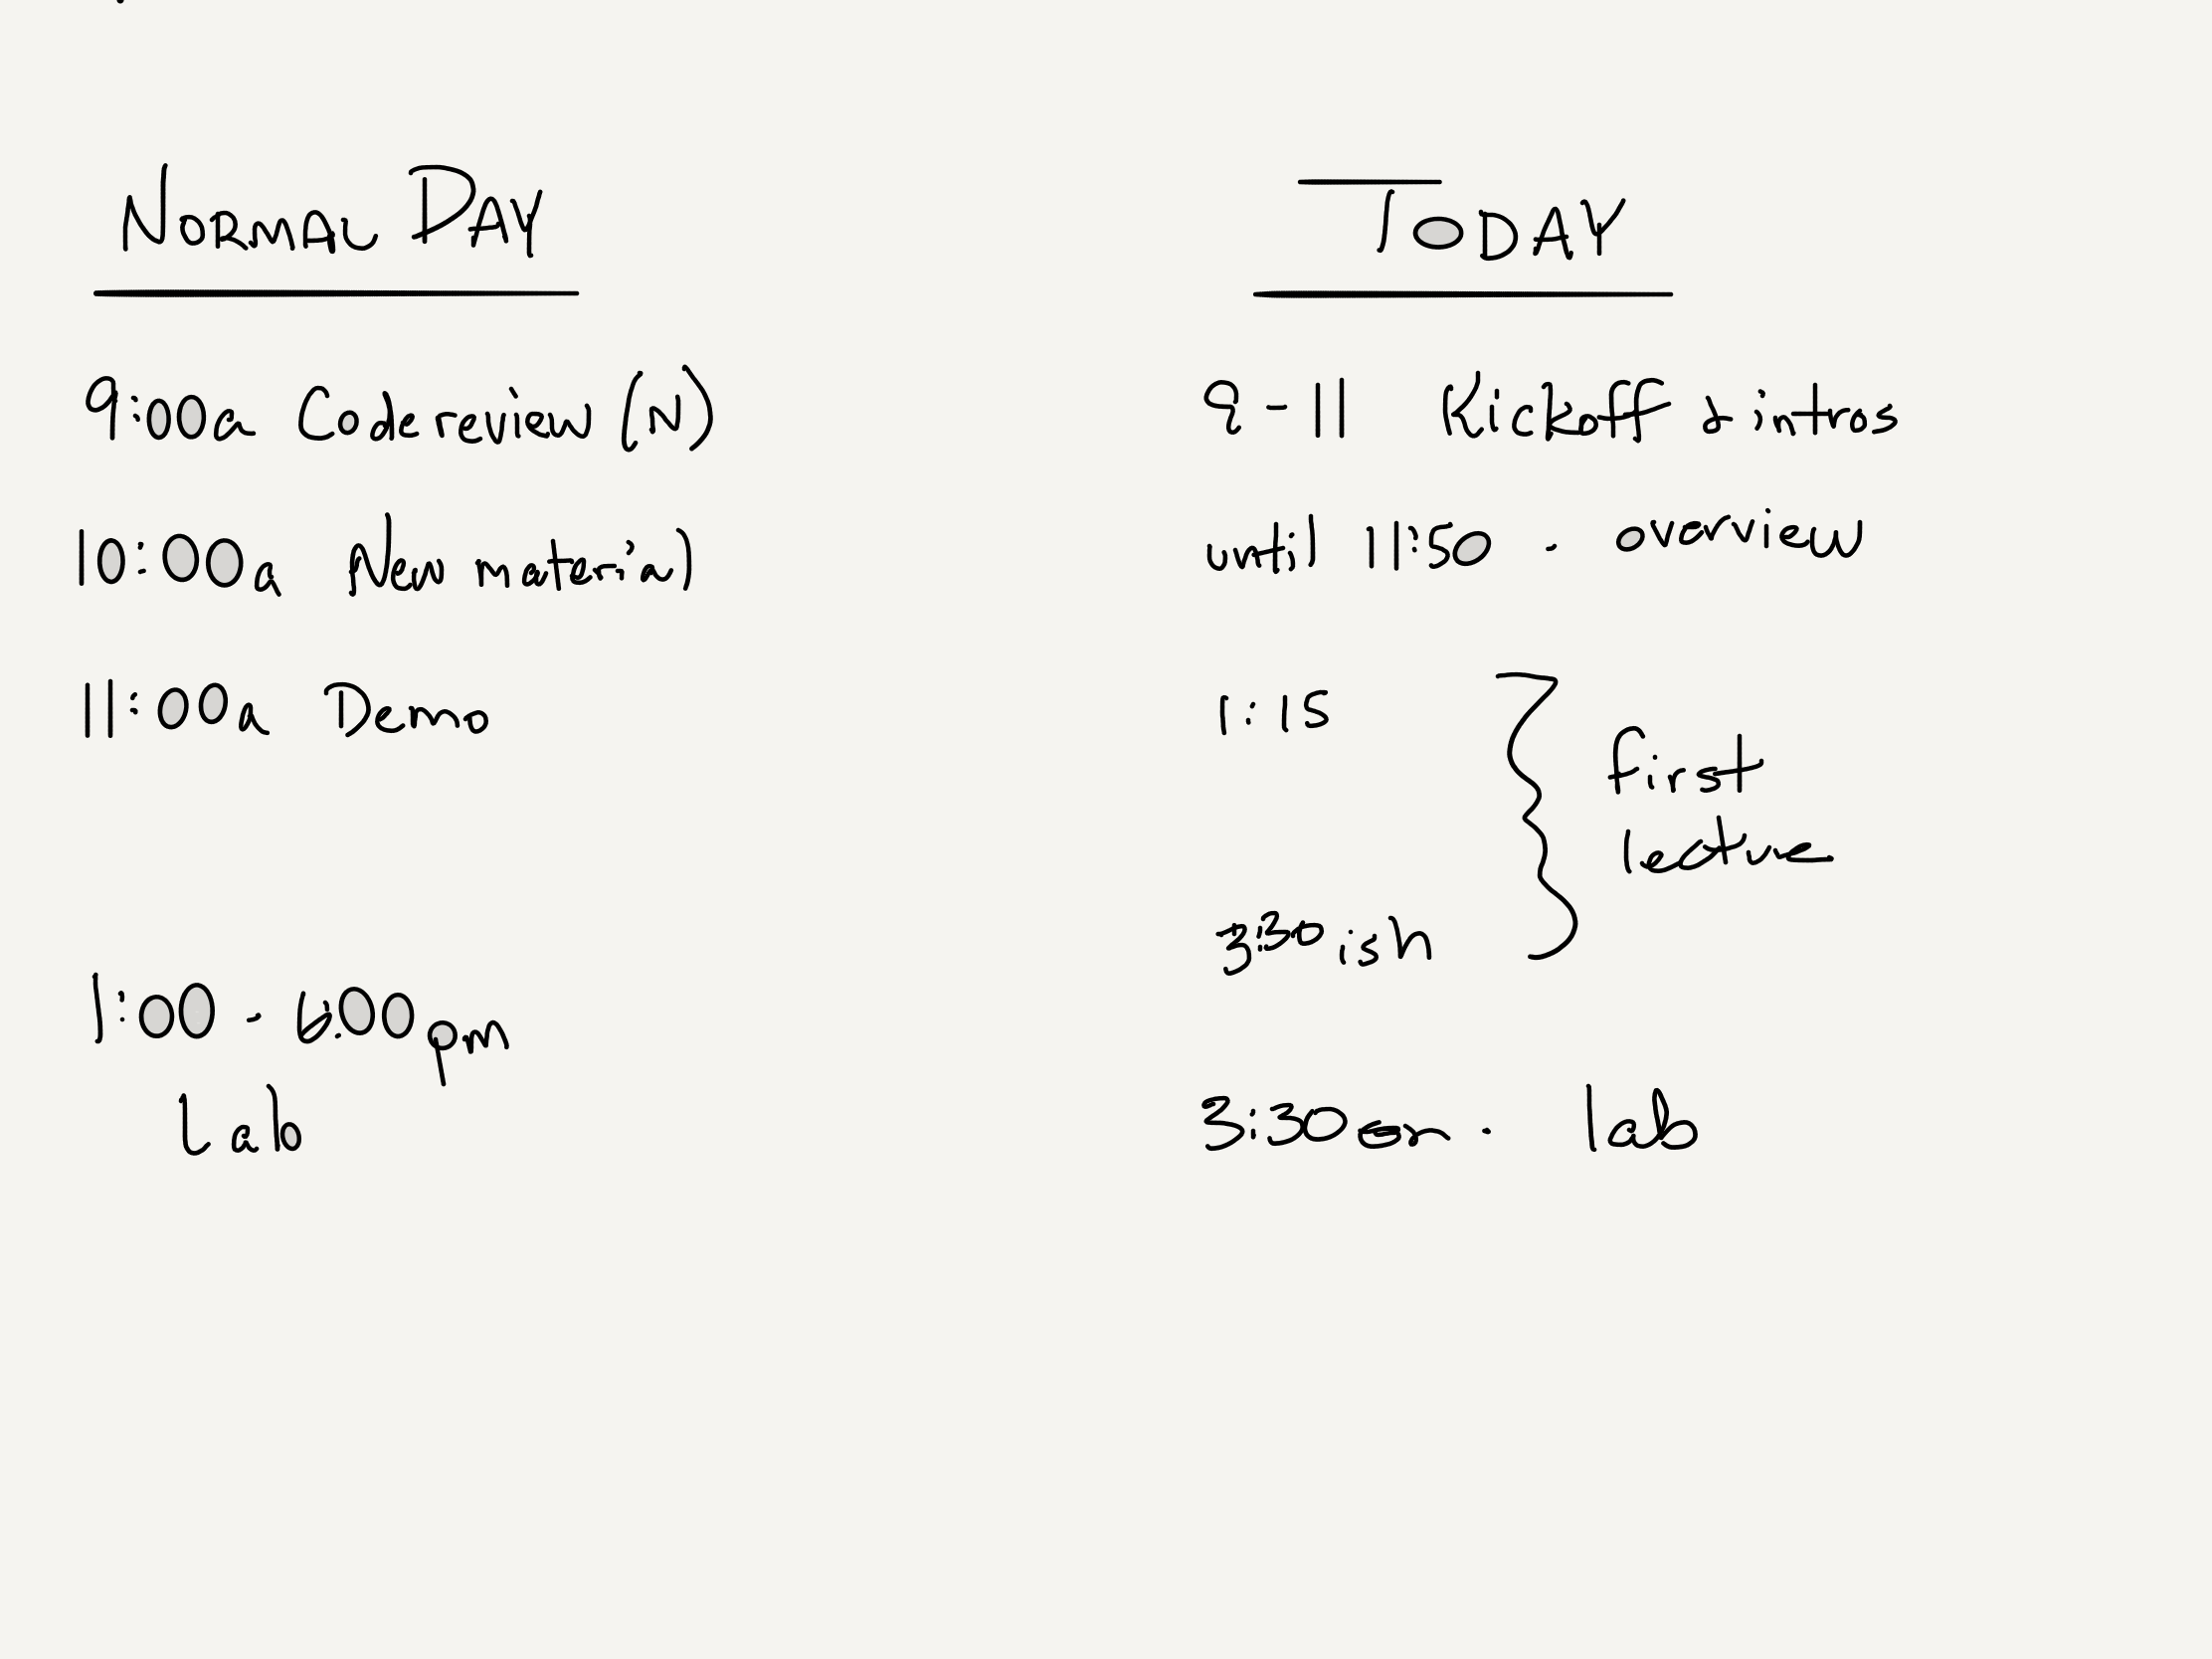 NORMAL DAY
9:00a Code review (N)
10:00a New material
11:00a Demo
1:00 - 6:00pm
Lab
TODAY
9 - 11 Kickoff & intros
until 11:50 - overview
1:15
first
lecture
3:30 ish
3:30 on - lab